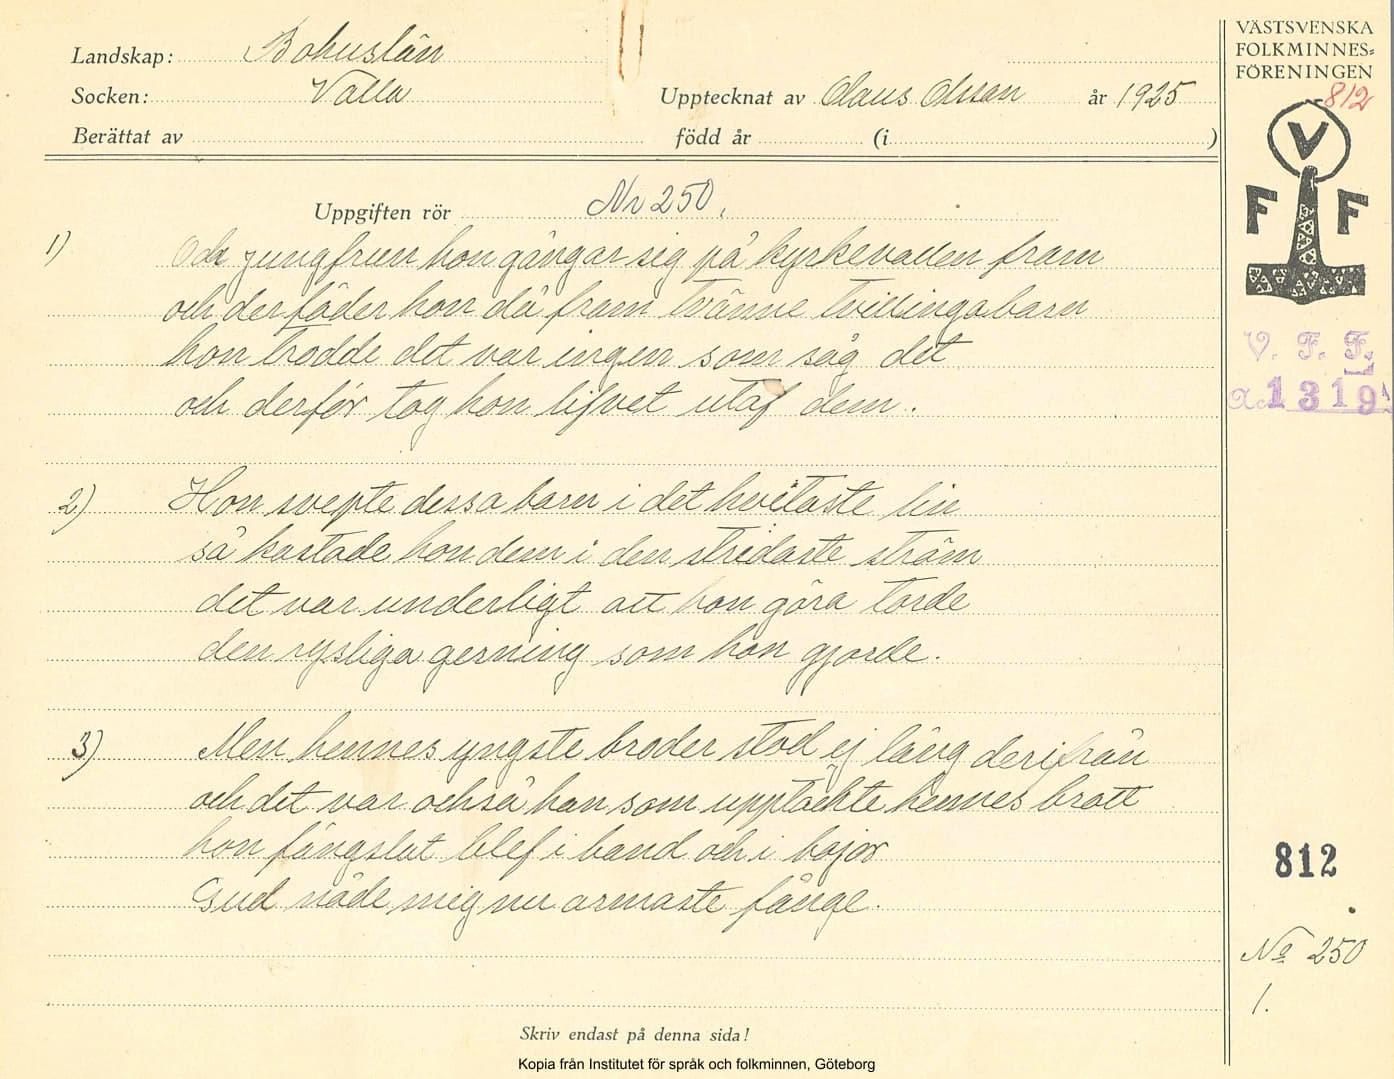 Landskap: Bohuslän
Socken: Valla
Upptecknat av Olaus Olsson år 1925
Berättat av
född år (i )
VÄSTSVENSKA
FOLKMINNES=
FÖRENINGEN
812
V
F F
V. F. F.
1319
Uppgiften rör Nr 250.
1) Och jungfrun hon gångar sig på kyrkevallen fram
och der föder hon då fram tvänne tvillingabarn
hon trodde det var ingen som såg det
och derför tog hon lifvet utaf dem.
2) Hon svepte dessa barn i det hvitaste lin
så kastade hon dem i den stridaste ström
det var underligt att hon göra torde
den rysliga gerning som hon gjorde.
3) Men hennes yngste broder stod ej lång derifrån
och det var också han som upptäckte hennes brott
hon fängslat blef i band och i bojor
Gud nåde mig nu armaste fånge.
812
No 250
1.
Skriv endast på denna sida!
Kopia från Institutet för språk och folkminnen, Göteborg